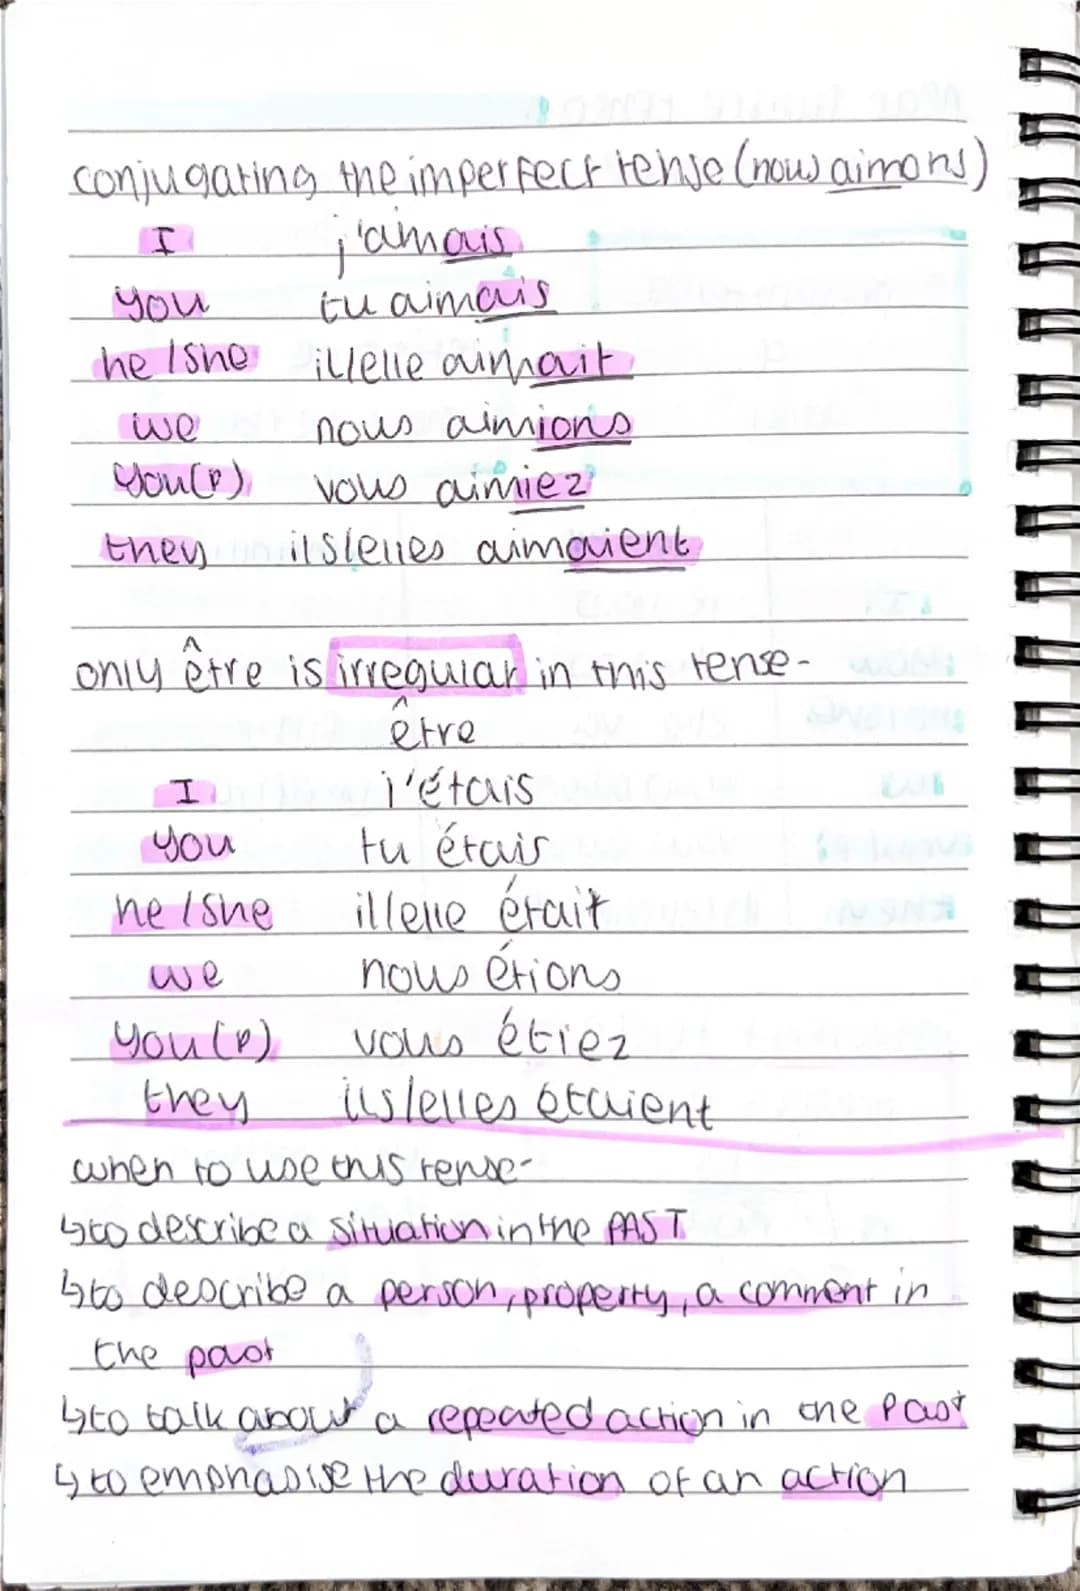 conjugating the imperfect tense (nous aimons)
I j'amais
you tu aimais
he/she il/elle aimait
we nous aimions
you(p) vous aimiez
they ils/elles aimaient
only être is irregular in this tense-
être
I j'étais
you tu étais
he/she il/elle était
we nous étions
you(p) vous étiez
they ils/elles étaient
when to use this tense-
↳to describe a situation in the PAST
↳to describe a person, property, a comment in
the past
↳to talk about a repeated action in the Past
↳to emphasise the duration of an action